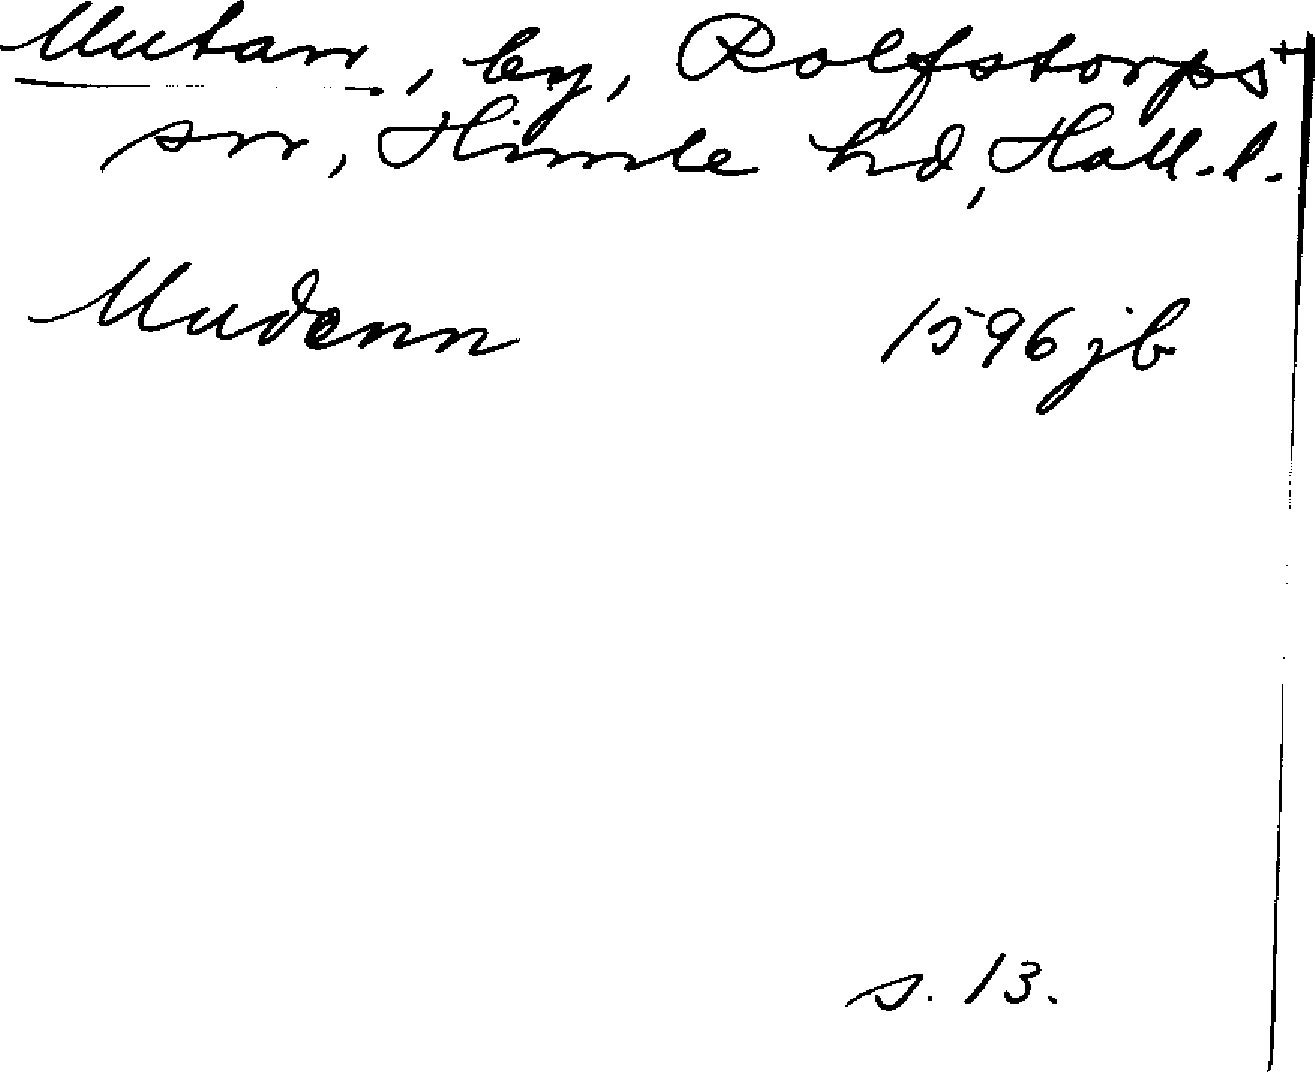 Mutan, by, Rolfstorps +
sn, Himle hd, Hall. l.
Mudenn 1596 jb
s. 13.